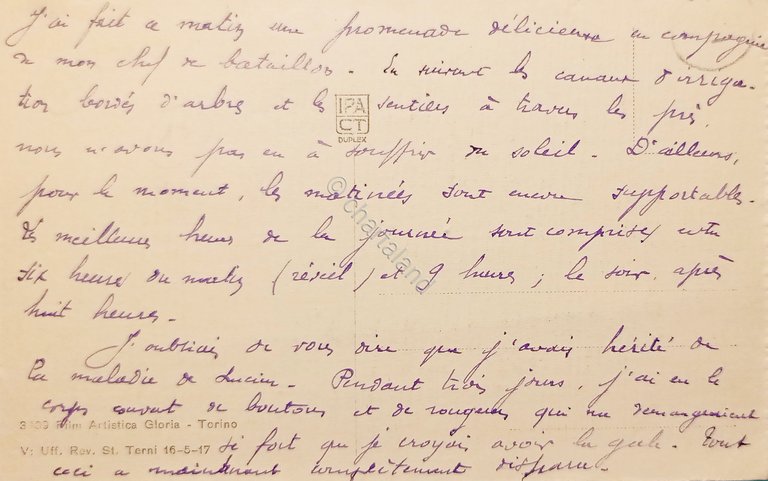 J'ai fait ce matin une promenade délicieuse en compagnie
de mon chef de bataillon - En suivant les canaux d'irriga-
tion bordés d'arbres et les sentiers à travers les prés,
nous n'avons pas eu à souffrir du soleil - D'ailleurs,
pour le moment, les matinées sont encore supportables.
Les meilleures heures de la journée sont comprises entre
six heures du matin (réveil) et 9 heures ; le soir, après
huit heures -
J'oubliais de vous dire que j'avais hérité de
la maladie de Lucien - Pendant trois jours, j'ai eu le
corps couvert de boutons et de rougeurs qui me demangeaient
si fort que je croyais avoir la gale - Tout
ceci a maintenant complètement disparu -
IPA
CT
DUPLEX
© chartaland
3139 Film Artistica Gloria - Torino
V: Uff. Rev. St. Terni 16-5-17